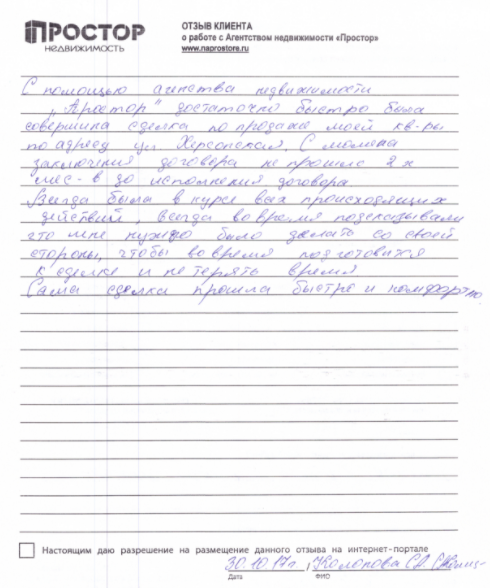 ПРОСТОР
НЕДВИЖИМОСТЬ
ОТЗЫВ КЛИЕНТА
о работе с Агентством недвижимости «Простор»
www.naprostore.ru
С помощью агенства недвижимости
„Простор" достаточно быстро была
совершина сделка по продаже моей кв-ры
по адресу ул. Херсонская. С момена
заключения договора не прошло 2х
мес-в до исполнения договора
Всегда была в курсе вах происходящих
действий, всегда во время подсказывали
что мне нужно было делать со своей
стороны, чтобы во время подготовится
к сделке и не терять время
Сама сделка прошла быстро и комфортно.
Настоящим даю разрешение на размещение данного отзыва на интернет-портале
30.10.17г.
Дата
ФИО